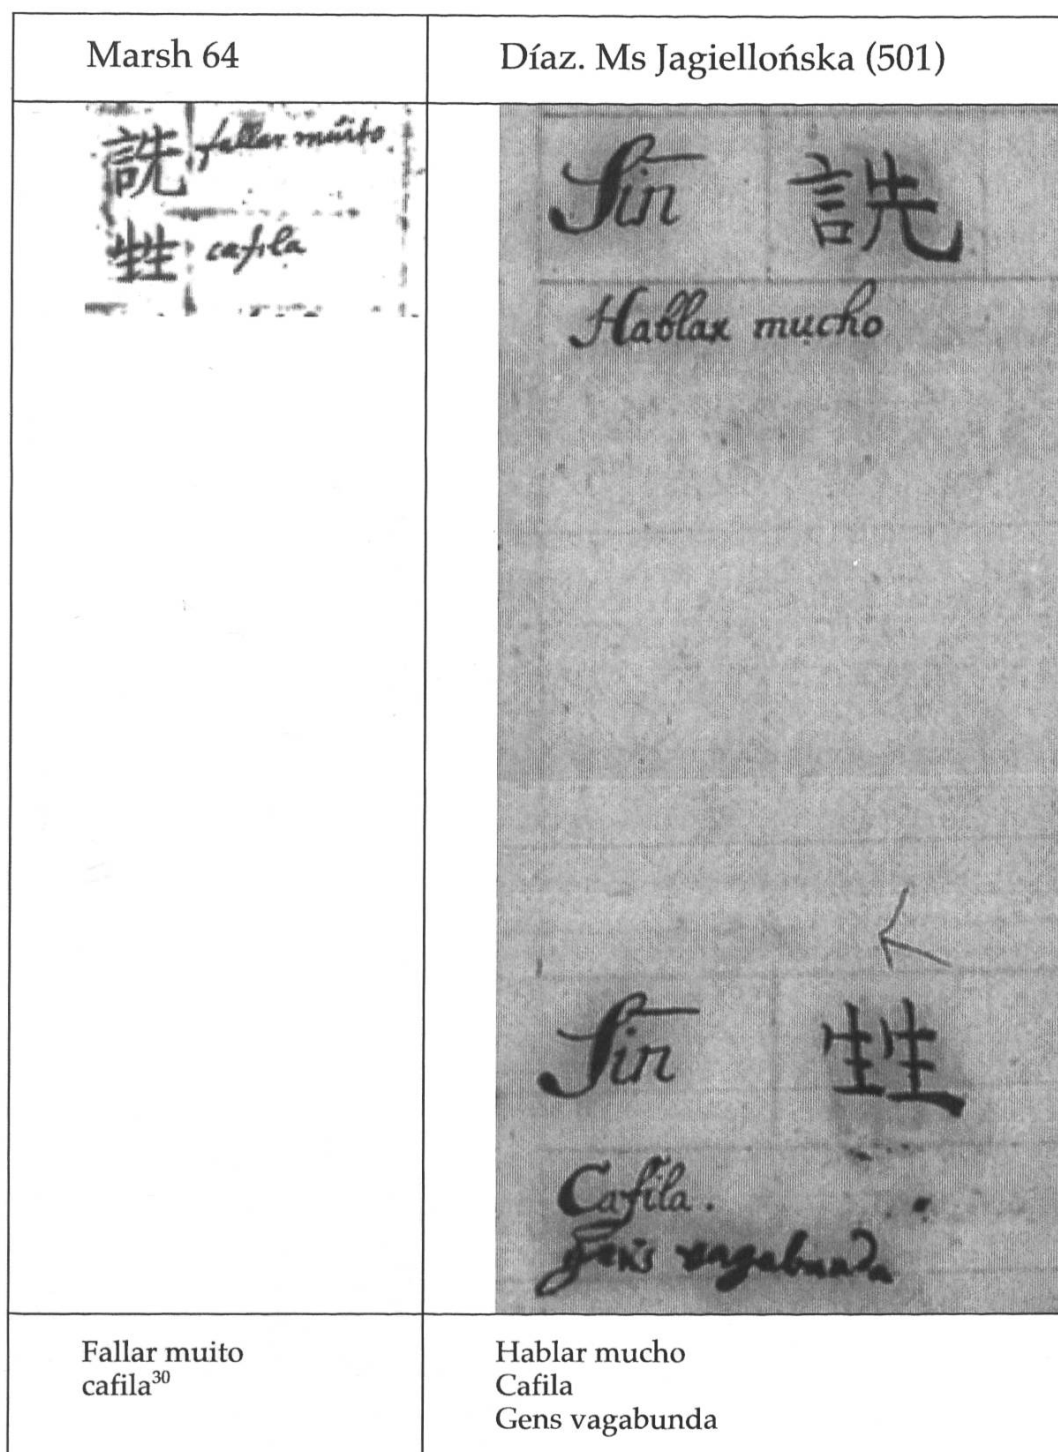 Marsh 64
Díaz. Ms Jagiellońska (501)
詵 fallar muito
甡 cafila
Sin 詵
Hablar mucho
Sin 甡
Cafila.
gens vagabunda
Fallar muito
cafila³⁰
Hablar mucho
Cafila
Gens vagabunda